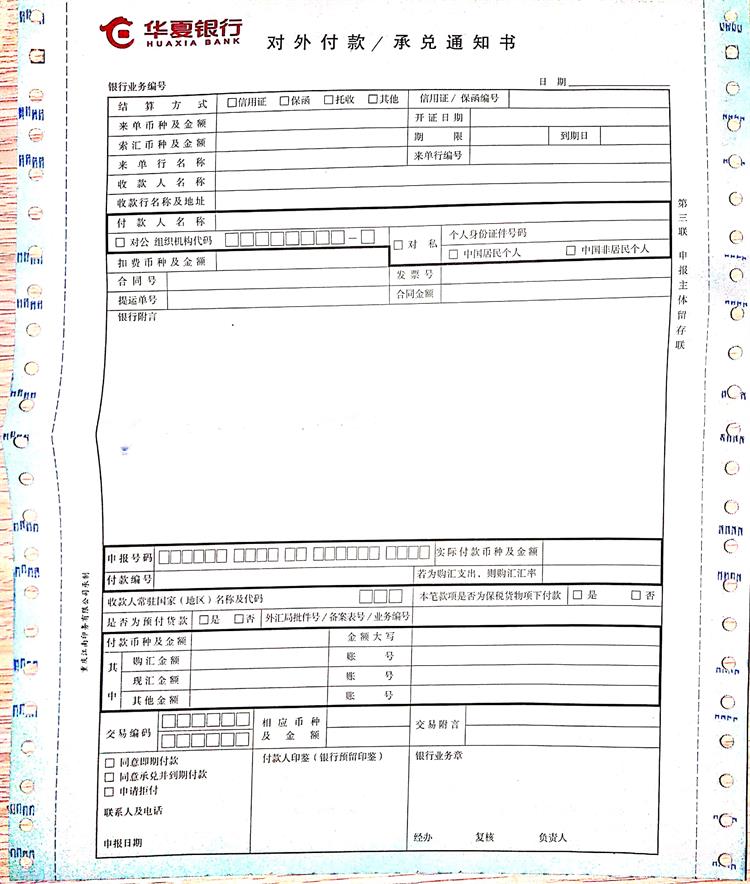 华夏银行
HUAXIA BANK
对外付款/承兑通知书
银行业务编号
日 期
结算方式 □信用证 □保函 □托收 □其他 信用证/保函编号
来单币种及金额 开证日期
索汇币种及金额 期限 到期日
来单行名称 来单行编号
收款人名称
收款行名称及地址
付款人名称
□ 对公 组织机构代码 □□□□□□□□-□ □ 对私 个人身份证件号码
□ 中国居民个人 □ 中国非居民个人
扣费币种及金额
合同号 发票号
提运单号 合同金额
银行附言
第三联 申报主体留存联
申报号码 □□□□□□ □□□□ □□ □□□□□□ □□□□ 实际付款币种及金额
付款编号 若为购汇支出,则购汇汇率
收款人常驻国家(地区)名称及代码 □□□ 本笔款项是否为保税货物项下付款 □ 是 □ 否
是否为预付货款 □是 □否 外汇局批件号/备案表号/业务编号
付款币种及金额 金额大写
其中
购汇金额 账号
现汇金额 账号
其他金额 账号
交易编码 □□□□□□ □□□□□□ 相应币种及金额 交易附言
□ 同意即期付款 付款人印鉴(银行预留印鉴) 银行业务章
□ 同意承兑并到期付款
□ 申请拒付
联系人及电话
申报日期 经办 复核 负责人
重庆江南印务有限公司承制